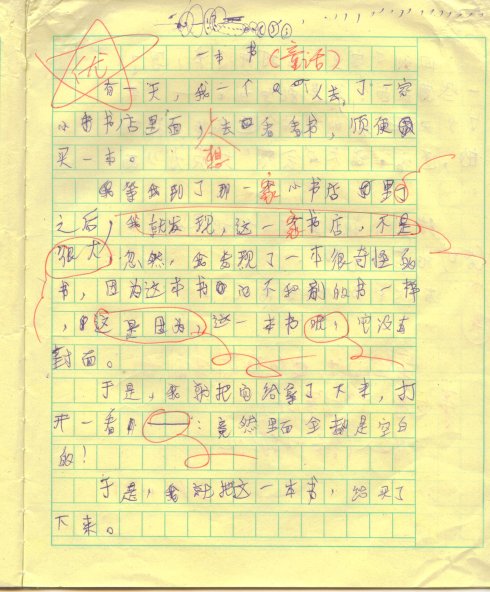 一本书(童话)
优
有一天，我一个人去了一家
小书店里面，想去看看书，顺便
买一本。
等我到了那一家小书店里
之后，我就发现，这一家书店，不是
很大，忽然，我发现了一本很奇怪的
书，因为这本书的不和别的书一样
，这是因为，这一本书呢，它没有
封面。
于是，我就把它给拿了下来，打
开一看：竟然里面全都是空白
的！
于是，我就把这一本书，给买了
下来。